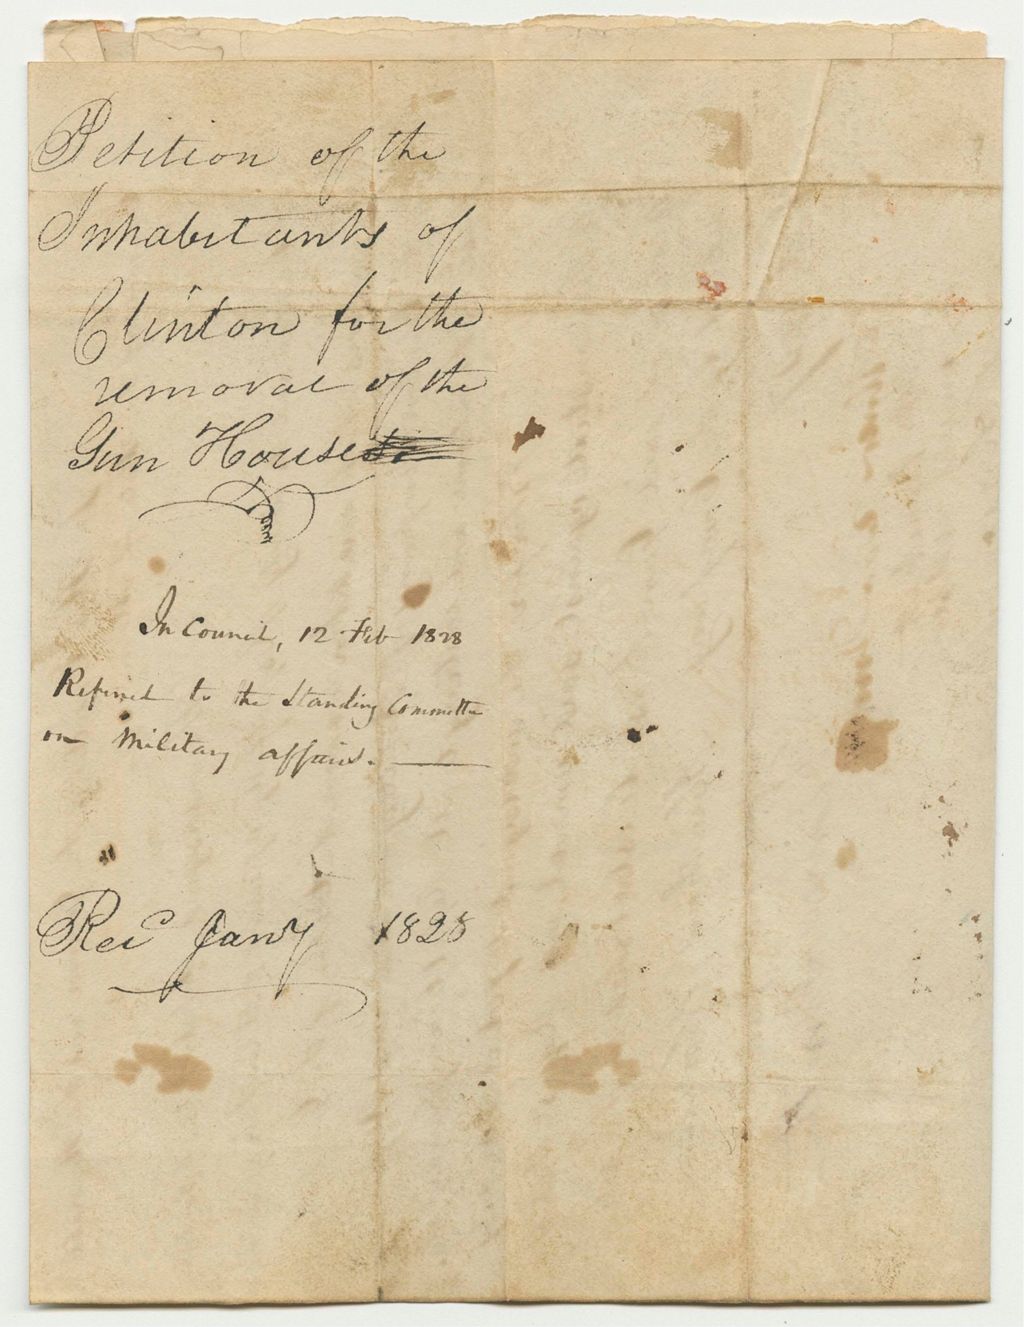 Petition of the
Inhabitants of
Clinton for the
removal of the
Gun House
In Council, 12 Feb 1828
Referred to the Standing Committee
on Military affairs.
Rec Jany 1828